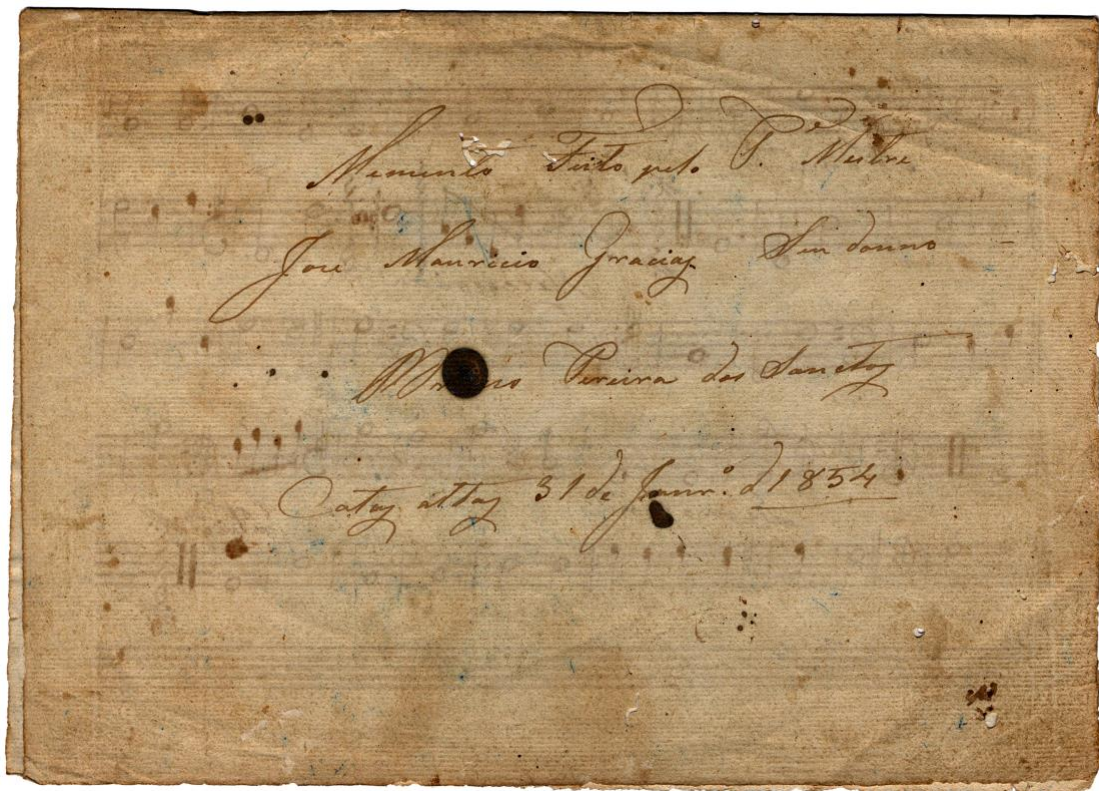 Memento Feito pelo P.e Mestre
Joze Mauricio Gracias Seu donno
Pereira dos Sanctos
Catas altas 31 de Janr.º d 1854